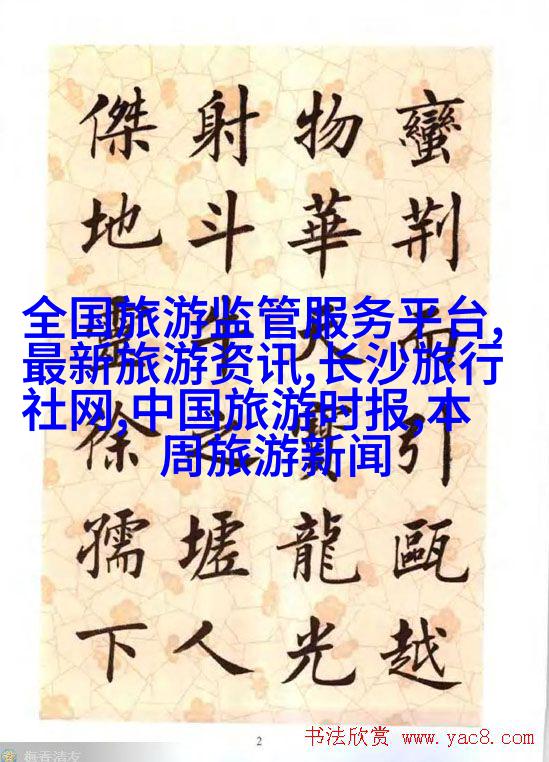 蠻荊而引甌越
物華天寶龍光
射斗牛之墟人
傑地靈徐孺下
全国旅游监管服务平台,
最新旅游资讯,长沙旅行
社网,中国旅游时报,本
周旅游新闻
2
书法欣赏 www.yac8.com